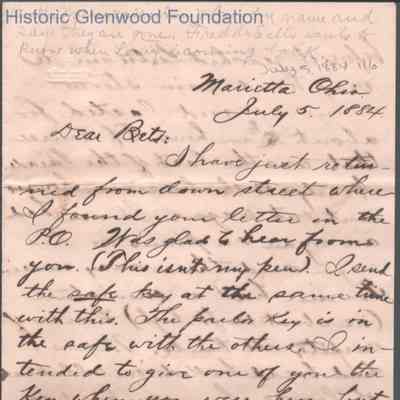 Historic Glenwood Foundation
name and
say they are gone. Hree
wants to
know when Levi is coming back
July 5, 1884
Marietta Ohio
July 5. 1884
Dear Bets:
I have just retur-
ned from down street where
I found your letter in the
P.O. Was glad to hear from
you. (This isnt my pen). I send
the safe key at the same time
with this. The parlor key is in
the safe with the others. I in-
tended to give one of you the
Key when you were here but